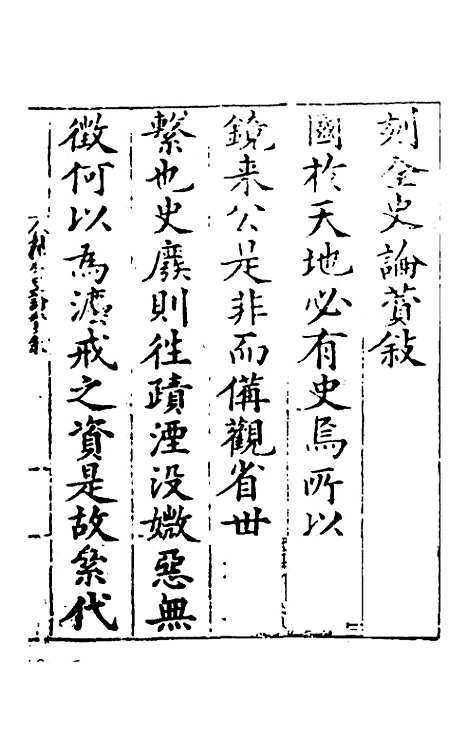 刻全史論贊敘
國於天地必有史焉所以
鏡来公是非而備觀省丗
繫也史廢則徃蹟湮没媺惡無
徵何以為灋戒之資是故絫代